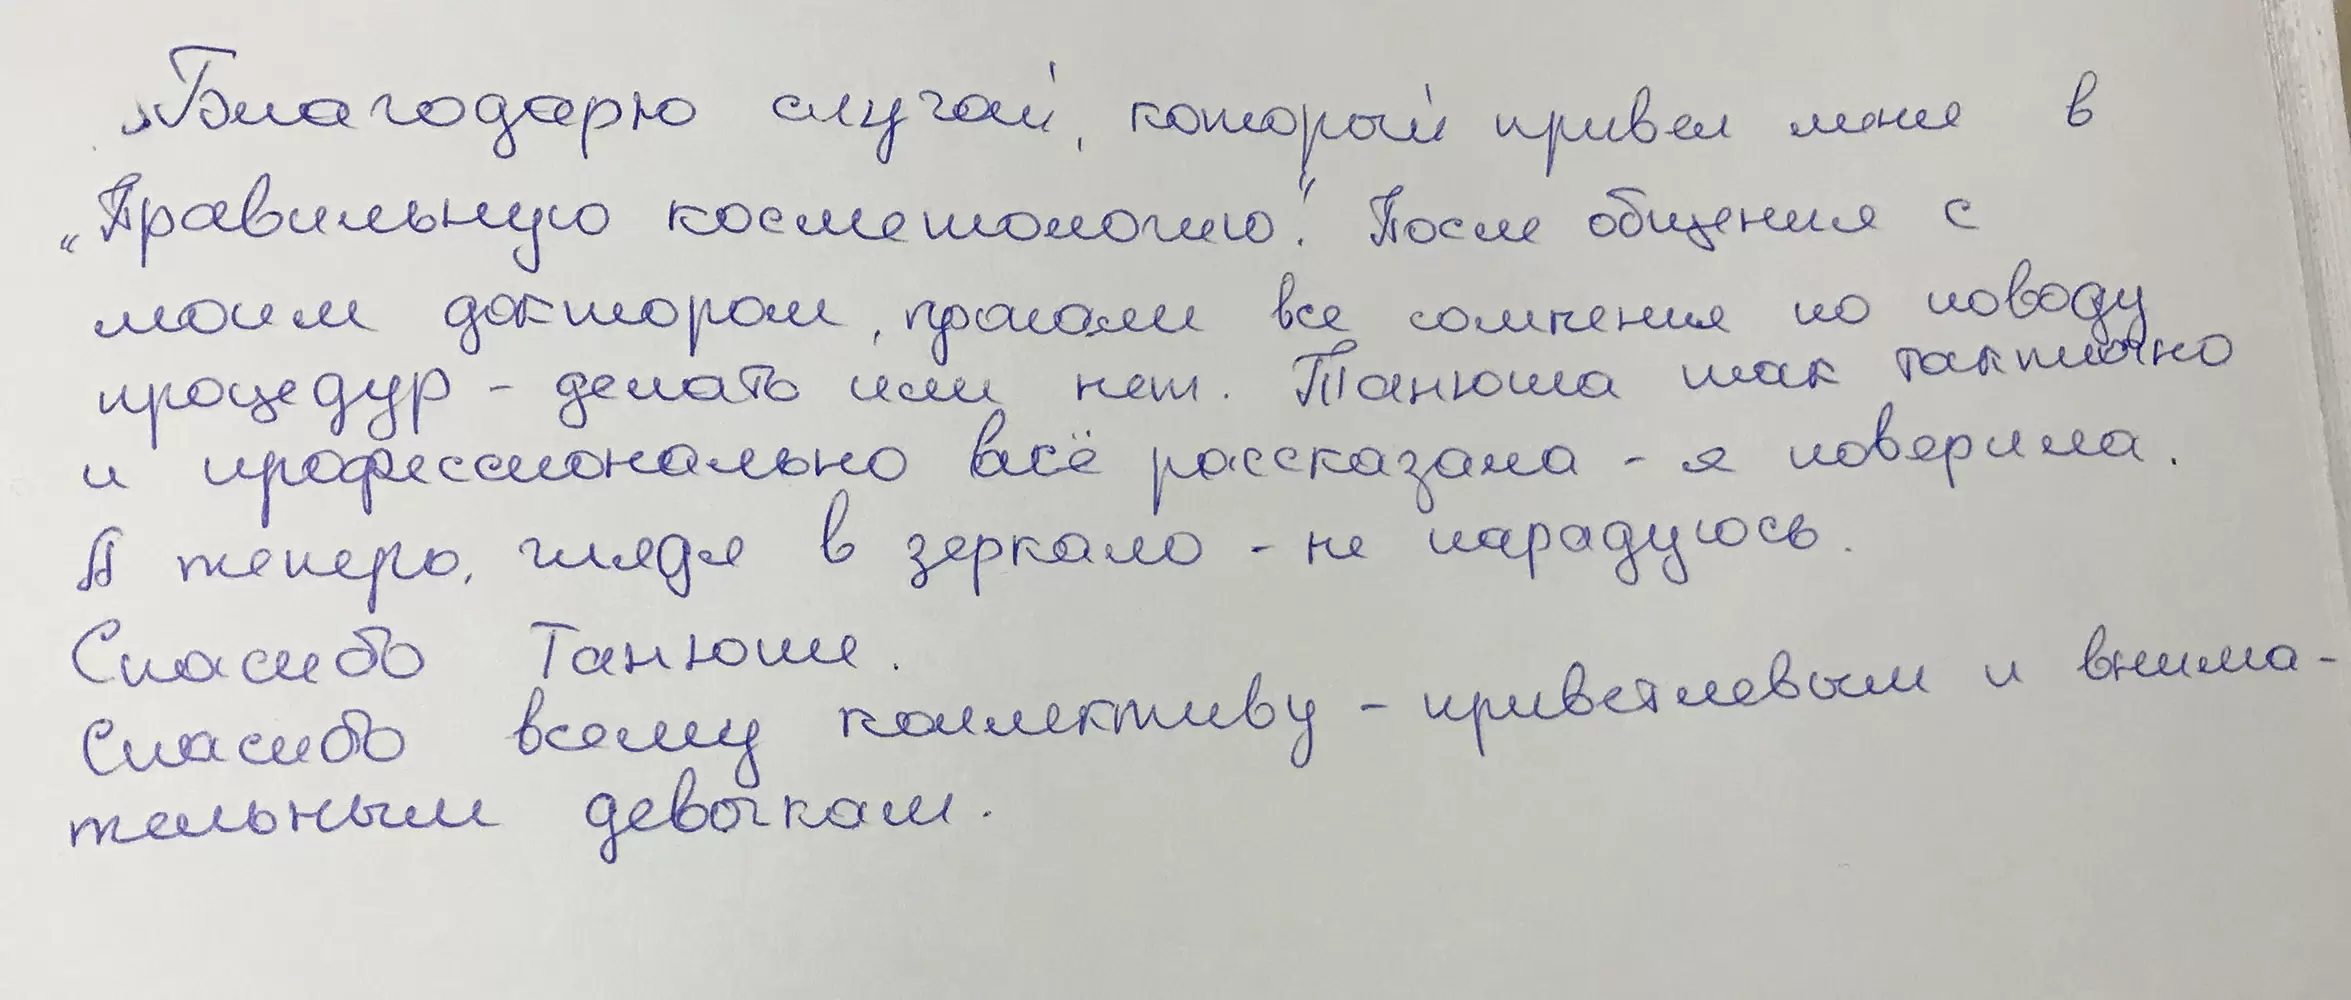 „Благодарю случай, который привел меня в
„Правильную косметологию“. После общения с
моим доктором, пропали все сомнения по поводу
процедур - делать или нет. Танюша так тактично
и профессионально всё рассказала - я поверила.
А теперь, глядя в зеркало - не нарадуюсь.
Спасибо Танюше.
Спасибо всему коллективу - приветлевым и внима-
тельным девочкам.